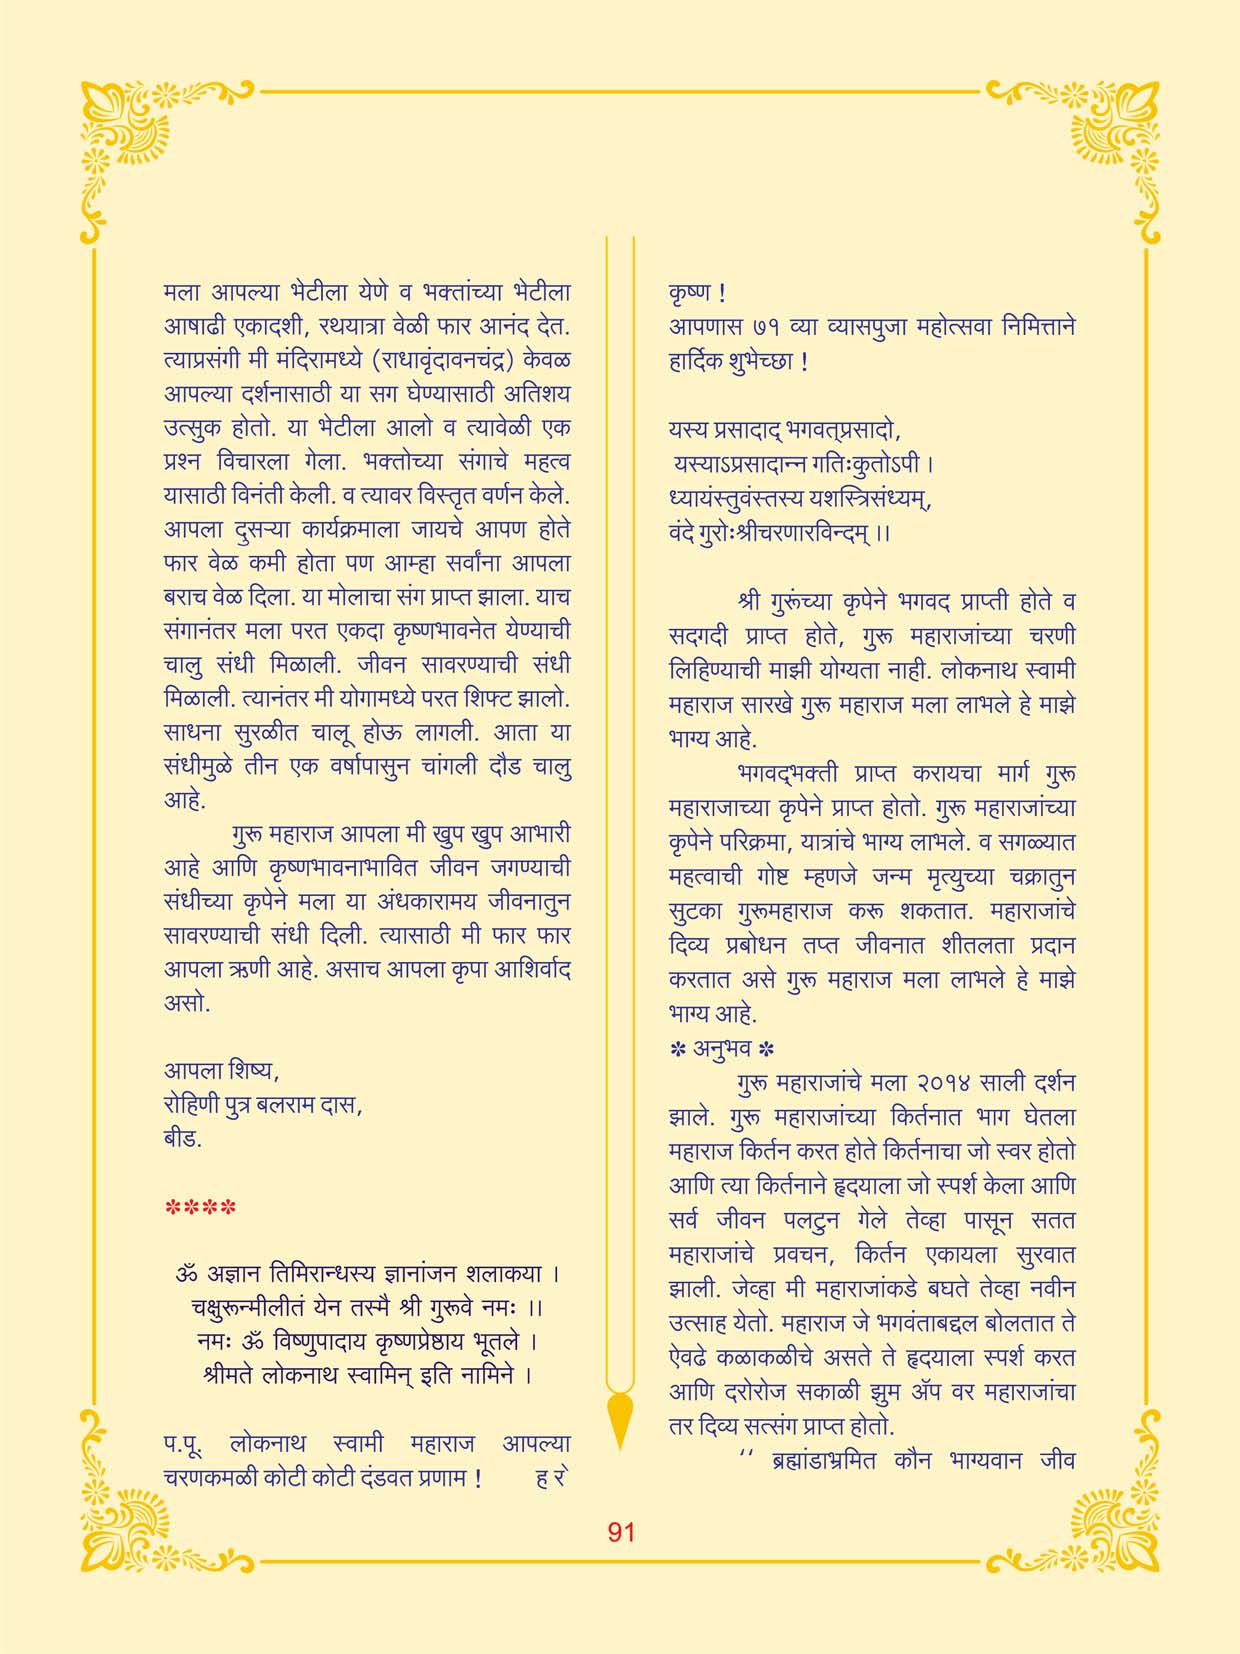 मला आपल्या भेटीला येणे व भक्तांच्या भेटीला
आषाढी एकादशी, रथयात्रा वेळी फार आनंद देत.
त्याप्रसंगी मी मंदिरामध्ये (राधावृंदावनचंद्र) केवळ
आपल्या दर्शनासाठी या सग घेण्यासाठी अतिशय
उत्सुक होतो. या भेटीला आलो व त्यावेळी एक
प्रश्न विचारला गेला. भक्तोच्या संगाचे महत्व
यासाठी विनंती केली. व त्यावर विस्तृत वर्णन केले.
आपला दुसऱ्या कार्यक्रमाला जायचे आपण होते
फार वेळ कमी होता पण आम्हा सर्वांना आपला
बराच वेळ दिला. या मोलाचा संग प्राप्त झाला. याच
संगानंतर मला परत एकदा कृष्णभावनेत येण्याची
चालु संधी मिळाली. जीवन सावरण्याची संधी
मिळाली. त्यानंतर मी योगामध्ये परत शिफ्ट झालो.
साधना सुरळीत चालू होऊ लागली. आता या
संधीमुळे तीन एक वर्षापासुन चांगली दौड चालु
आहे.
गुरू महाराज आपला मी खुप खुप आभारी
आहे आणि कृष्णभावनाभावित जीवन जगण्याची
संधीच्या कृपेने मला या अंधकारामय जीवनातुन
सावरण्याची संधी दिली. त्यासाठी मी फार फार
आपला ऋणी आहे. असाच आपला कृपा आशिर्वाद
असो.
आपला शिष्य,
रोहिणी पुत्र बलराम दास,
बीड.
****
ॐ अज्ञान तिमिरान्धस्य ज्ञानांजन शलाकया ।
चक्षुरून्मीलीतं येन तस्मै श्री गुरूवे नमः ।।
नमः ॐ विष्णुपादाय कृष्णप्रेष्ठाय भूतले ।
श्रीमते लोकनाथ स्वामिन् इति नामिने ।
प.पू. लोकनाथ स्वामी महाराज आपल्या
चरणकमळी कोटी कोटी दंडवत प्रणाम ! ह रे
कृष्ण !
आपणास ७१ व्या व्यासपुजा महोत्सवा निमित्ताने
हार्दिक शुभेच्छा !
यस्य प्रसादाद् भगवत्प्रसादो,
यस्याऽप्रसादान्न गतिःकुतोऽपी ।
ध्यायंस्तुवंस्तस्य यशस्त्रिसंध्यम्,
वंदे गुरोःश्रीचरणारविन्दम् ।।
श्री गुरूंच्या कृपेने भगवद प्राप्ती होते व
सदगदी प्राप्त होते, गुरू महाराजांच्या चरणी
लिहिण्याची माझी योग्यता नाही. लोकनाथ स्वामी
महाराज सारखे गुरू महाराज मला लाभले हे माझे
भाग्य आहे.
भगवद्भक्ती प्राप्त करायचा मार्ग गुरू
महाराजाच्या कृपेने प्राप्त होतो. गुरू महाराजांच्या
कृपेने परिक्रमा, यात्रांचे भाग्य लाभले. व सगळ्यात
महत्वाची गोष्ट म्हणजे जन्म मृत्युच्या चक्रातुन
सुटका गुरूमहाराज करू शकतात. महाराजांचे
दिव्य प्रबोधन तप्त जीवनात शीतलता प्रदान
करतात असे गुरू महाराज मला लाभले हे माझे
भाग्य आहे.
* अनुभव *
गुरू महाराजांचे मला २०१४ साली दर्शन
झाले. गुरू महाराजांच्या किर्तनात भाग घेतला
महाराज किर्तन करत होते किर्तनाचा जो स्वर होतो
आणि त्या किर्तनाने हृदयाला जो स्पर्श केला आणि
सर्व जीवन पलटुन गेले तेव्हा पासून सतत
महाराजांचे प्रवचन, किर्तन एकायला सुरवात
झाली. जेव्हा मी महाराजांकडे बघते तेव्हा नवीन
उत्साह येतो. महाराज जे भगवंताबद्दल बोलतात ते
ऐवढे कळाकळीचे असते ते हृदयाला स्पर्श करत
आणि दरोरोज सकाळी झुम ॲप वर महाराजांचा
तर दिव्य सत्संग प्राप्त होतो.
‘‘ ब्रह्मांडाभ्रमित कौन भाग्यवान जीव
91